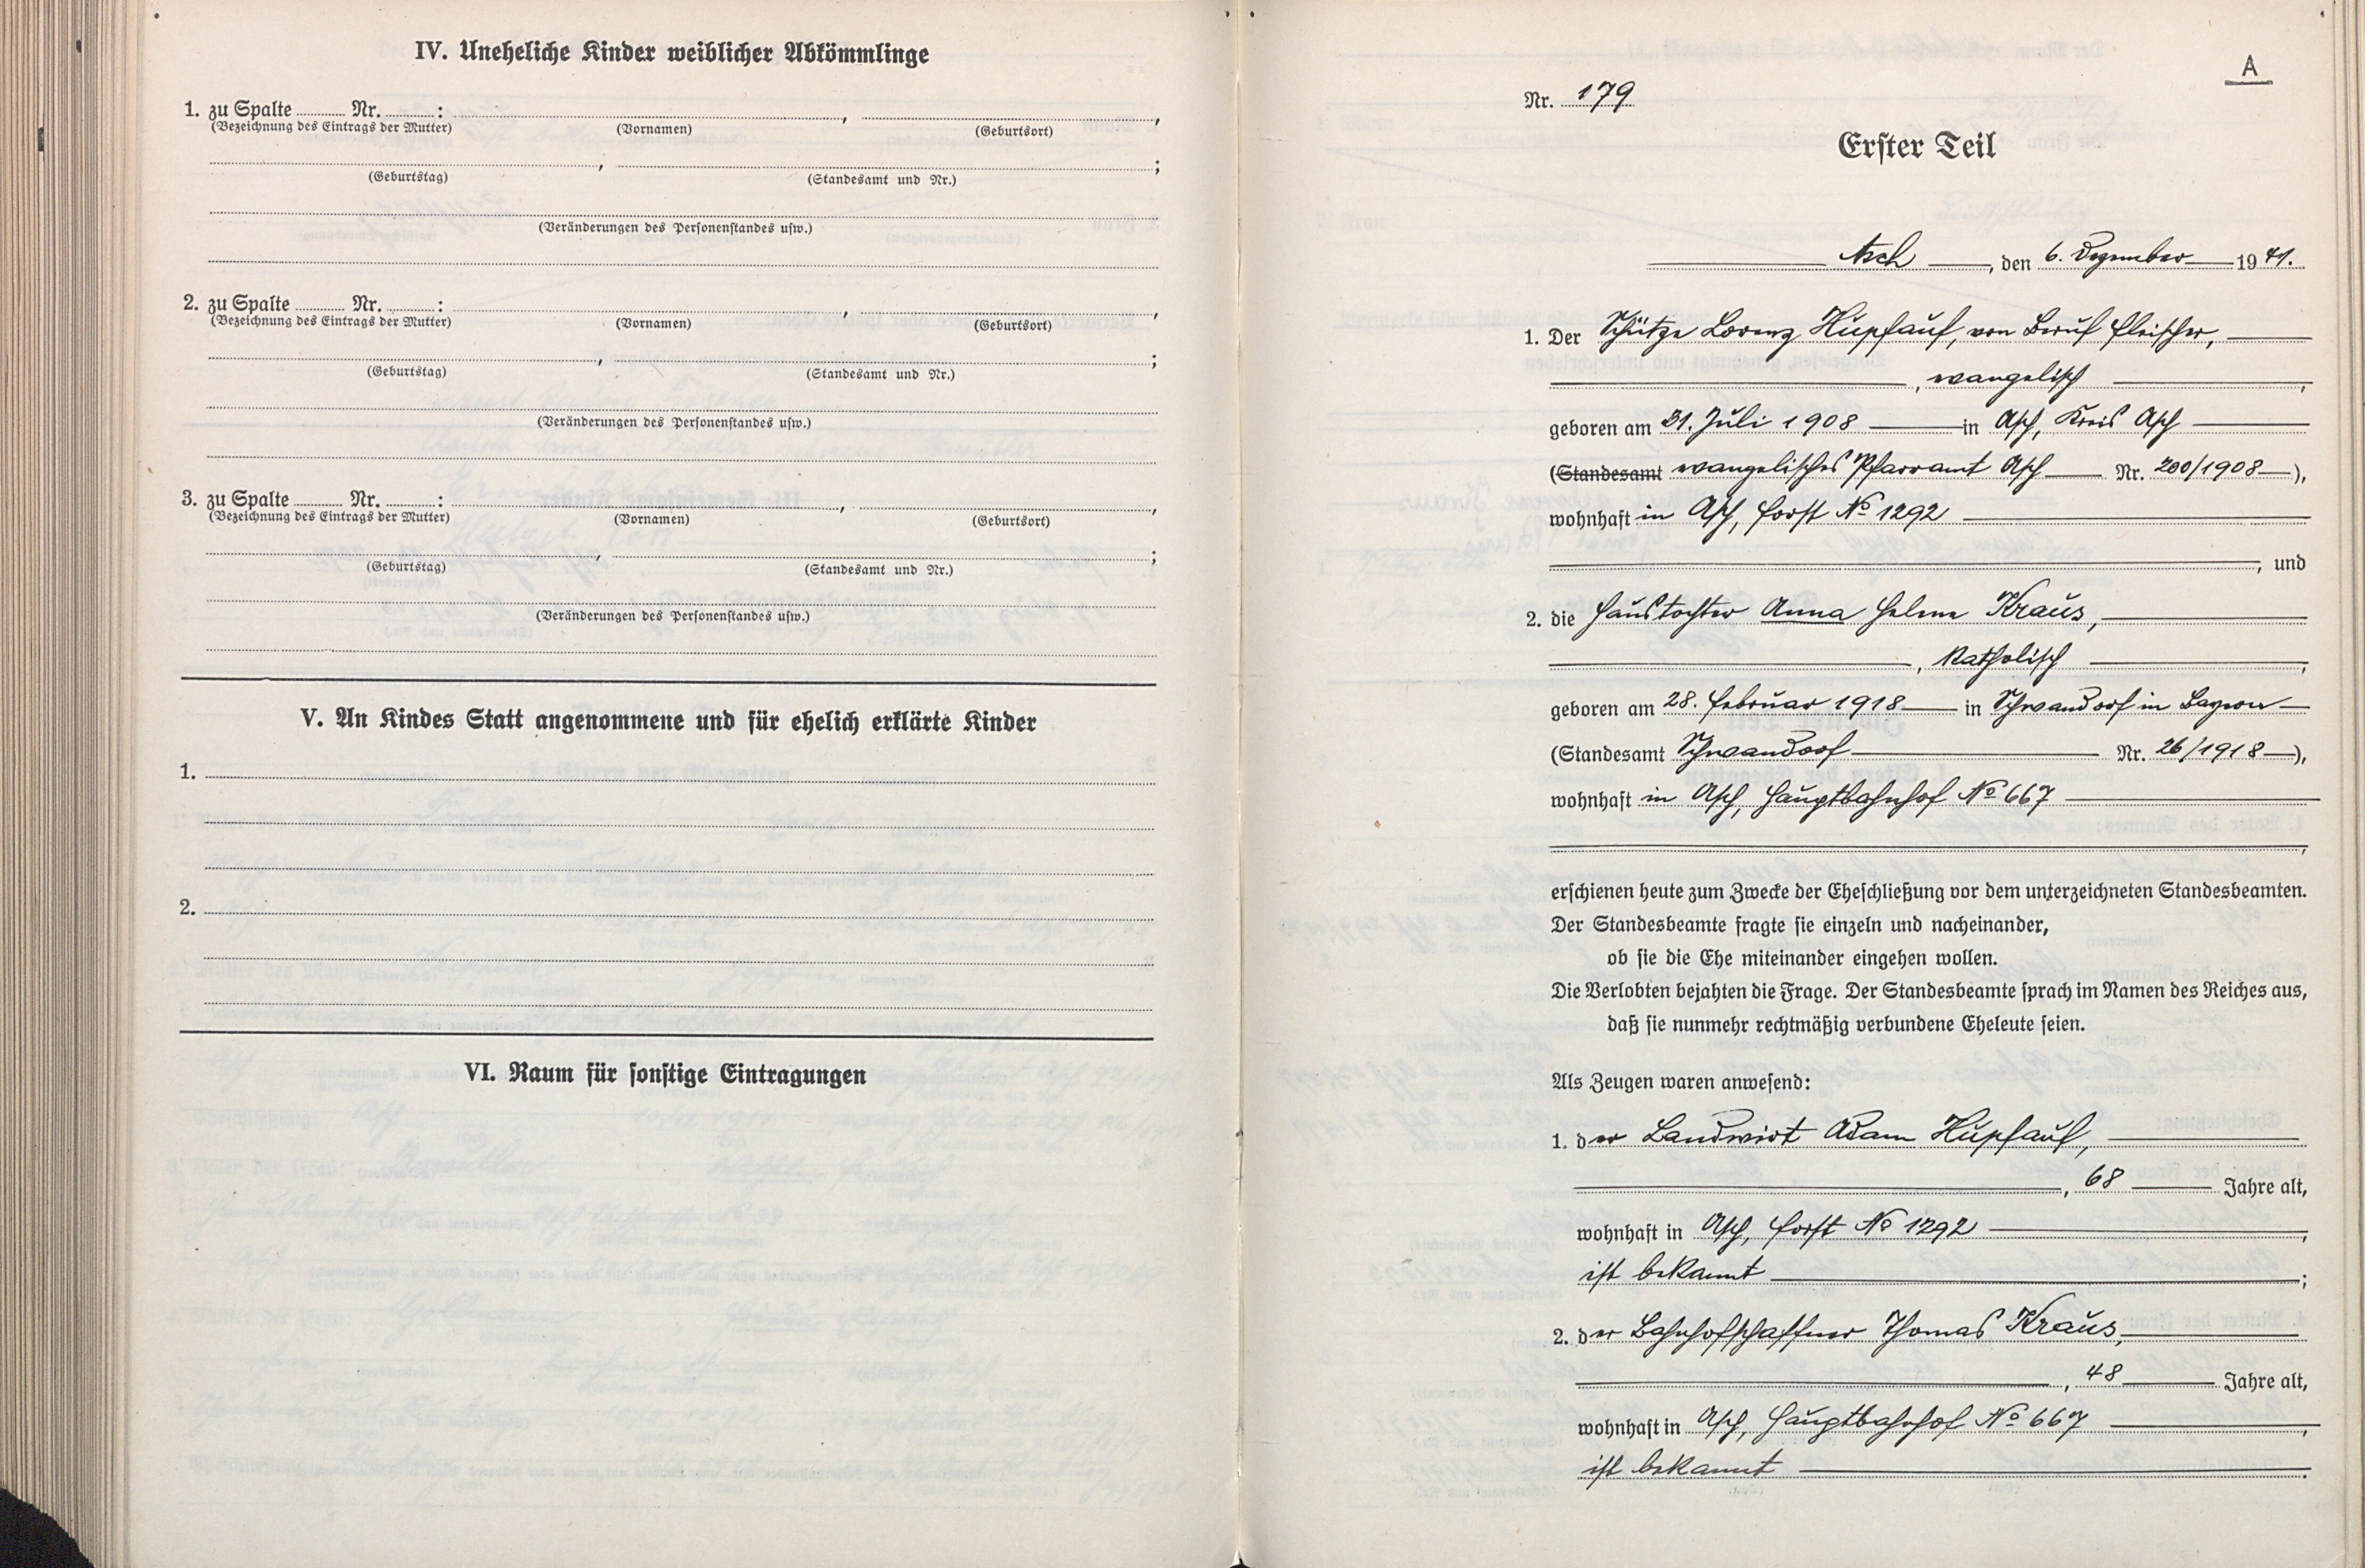 IV. Uneheliche Kinder weiblicher Abkömmlinge
1. zu Spalte ........ Nr. ........:
(Bezeichnung des Eintrags der Mutter) (Vornamen) (Geburtsort)
(Geburtstag) (Standesamt und Nr.)
(Veränderungen des Personenstandes usw.)
2. zu Spalte ........ Nr. ........:
(Bezeichnung des Eintrags der Mutter) (Vornamen) (Geburtsort)
(Geburtstag) (Standesamt und Nr.)
(Veränderungen des Personenstandes usw.)
3. zu Spalte ........ Nr. ........:
(Bezeichnung des Eintrags der Mutter) (Vornamen) (Geburtsort)
(Geburtstag) (Standesamt und Nr.)
(Veränderungen des Personenstandes usw.)
V. An Kindes Statt angenommene und für ehelich erklärte Kinder
1.
2.
VI. Raum für sonstige Eintragungen
A
Nr. 179
Erster Teil
Asch, den 6. Dezember 1941.
1. Der Schütze Lorenz Hüpfauf, von Beruf Fleischer,
, evangelisch,
geboren am 31. Juli 1908 in Asch, Kreis Asch
(Standesamt evangelisches Pfarramt Asch Nr. 200/1908),
wohnhaft in Asch, Forst No 1292
, und
2. die Haustochter Anna Helene Kraus,
, katholisch,
geboren am 28. Februar 1918 in Schwandorf in Bayern
(Standesamt Schwandorf Nr. 26/1918),
wohnhaft in Asch, Hauptbahnhof No 667
,
erschienen heute zum Zwecke der Eheschließung vor dem unterzeichneten Standesbeamten.
Der Standesbeamte fragte sie einzeln und nacheinander,
ob sie die Ehe miteinander eingehen wollen.
Die Verlobten bejahten die Frage. Der Standesbeamte sprach im Namen des Reiches aus,
daß sie nunmehr rechtmäßig verbundene Eheleute seien.
Als Zeugen waren anwesend:
1. der Landwirt Adam Hüpfauf,
, 68 Jahre alt,
wohnhaft in Asch, Forst No 1292,
ist bekannt;
2. der Bahnhofschaffner Thomas Kraus,
, 48 Jahre alt,
wohnhaft in Asch, Hauptbahnhof No 667,
ist bekannt.